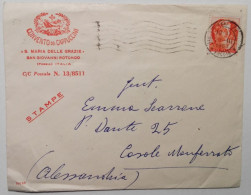 CONVENTO dei CAPPUCCINI
« S. MARIA DELLE GRAZIE »
SAN GIOVANNI ROTONDO
(FOGGIA - ITALIA)
C/C Postale N. 13/8511
STAMPE
Gent.
Emma
P. Dante 25
Casale Monferrato
(Alessandria)